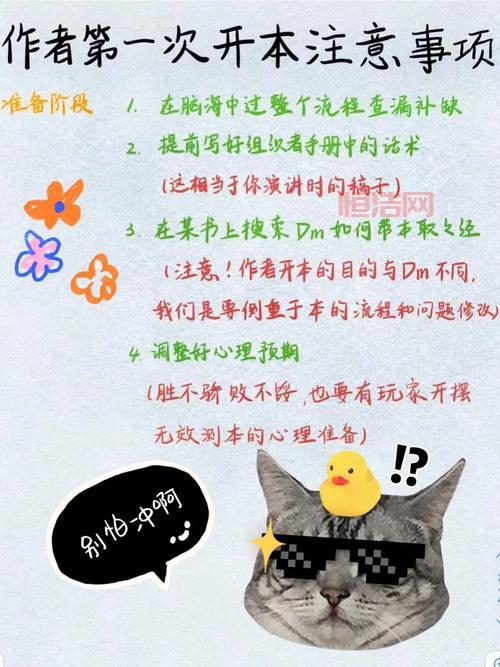 作者第一次开本注意事项
准备阶段
1. 在脑海中过整个流程查漏补缺
2. 提前写好组织者手册中的话术
(这相当于你演讲时的稿子)
恒洁网
3. 在某书上搜索Dm如何带本取取经
(注意!作者开本的目的与Dm不同,
我们是要侧重于本的流程和问题修改)
4. 调整好心理预期
(胜不骄败不馁,也要有玩家开摆
无效测本的心理准备)
!?
别怕冲啊